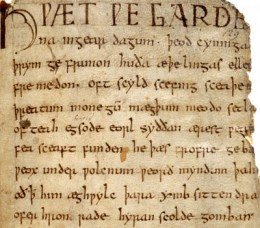 HǷÆT ǷE GARDE
na ingear dagum. þeod cyninga
þrym ge frunon huða æþelingas elle
fremedon. oft scyld scefing sceaþe
þreatum monegū mægþum meodo setl
of teah egsode eorl syððan ærest ƿea
fea sceaft funden he þæs frofre geba
ƿeox under ƿolcnum ƿeorð myndum þah
oð ꝥ him æghƿylc þara ymb sittendra
ofer hron rade hyran scolde gomban